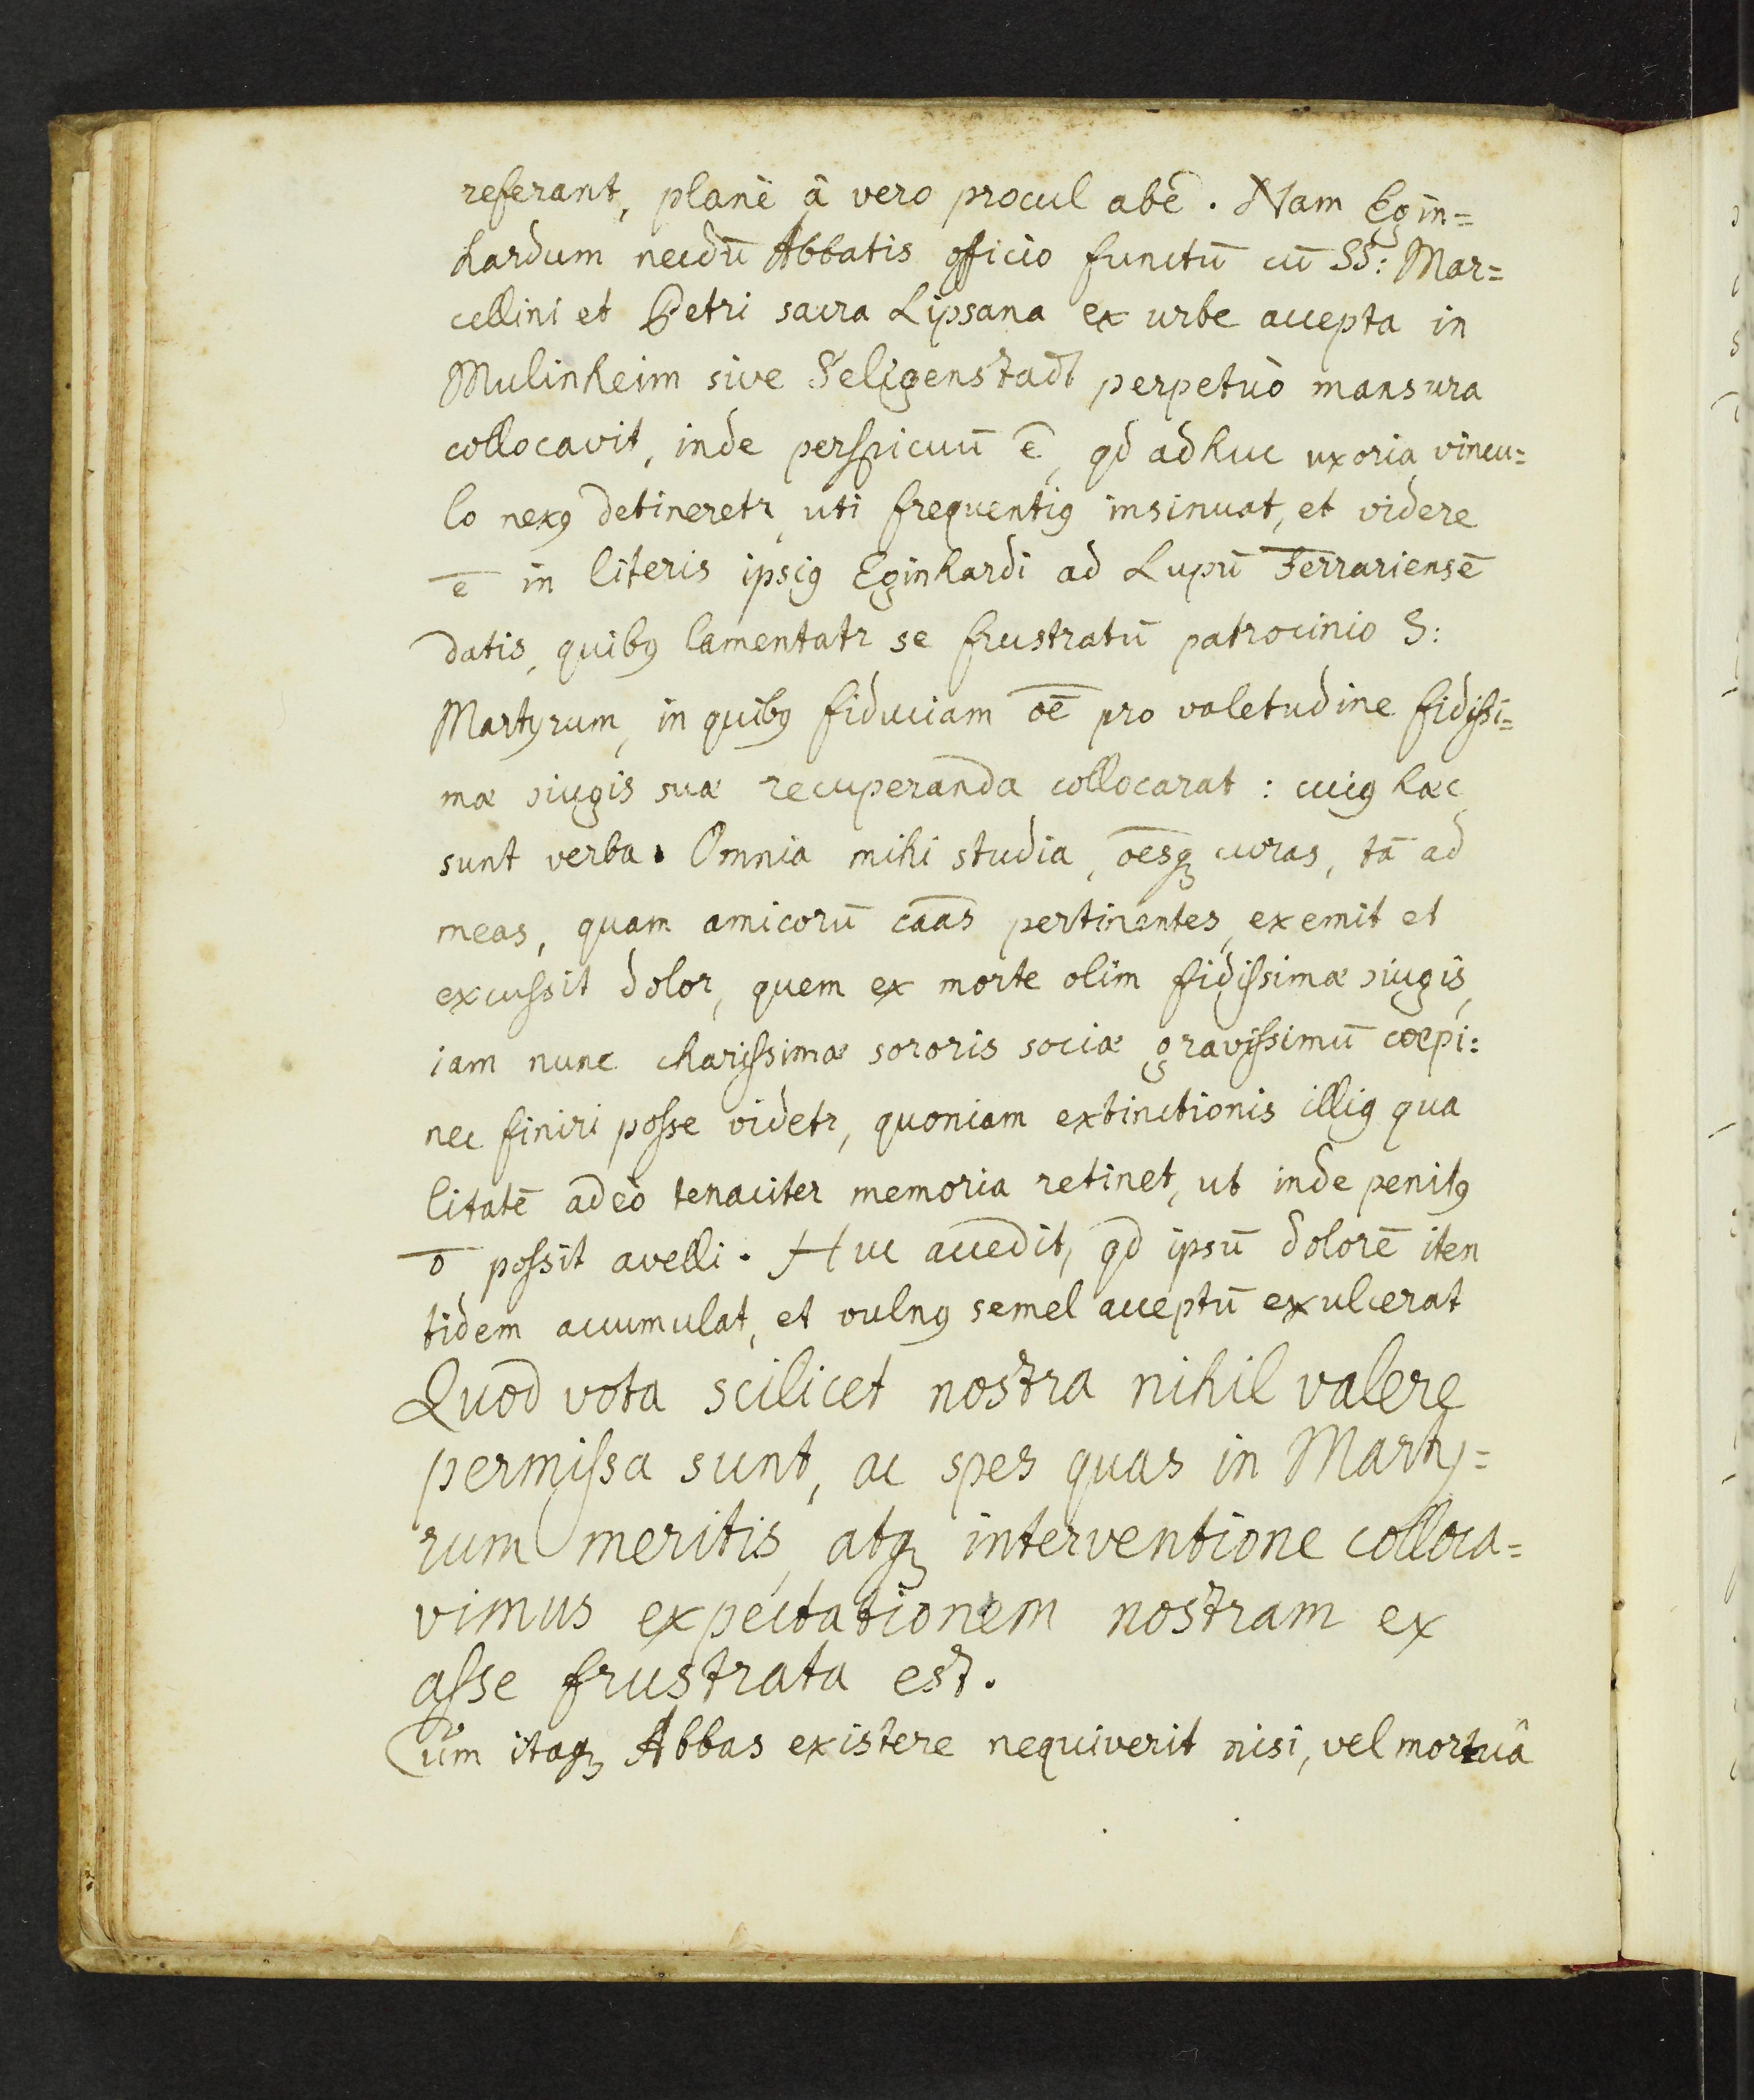 referant, planè â vero procul abē. Nam Egin=
hardum necdū Abbatis officio functū cū SS: Mar=
cellini et Petri sacra Lipsana ex urbe accepta in
Mulinheim sive Seligenstadt perpetuò mansura
collocavit, inde perspicuū ē, qd adhuc uxoria vincu=
lo nexꝰ detineretr, uti frequentiꝰ insinuat, et videre
ē in literis ipsiꝰ Eginhardi ad Lupū Ferrariensē
datis, quibꝰ lamentatr se frustratū patrocinio S:
Martyrum, in quibꝰ fiduciam oē pro valetudine fidissi=
mæ ɔiugis suæ recuperanda collocarat: cuiꝰ hæc
sunt verba. Omnia mihi studia, oēsqꝫ curas, tā ad
meas, quam amicorū cāas pertinentes, exemit et
excussit dolor, quem ex morte olim fidissimæ ɔiugis,
iam nunc charissimæ sororis sociæ gravissimū coepi:
nec finiri posse videtr, quoniam extinctionis illiꝰ qua
litatē adeò tenaciter memoria retinet, ut inde penitꝰ
ō possit avelli. Huc accedit, qd ipsū dolorē iten
tidem accumulat, et vulnꝰ semel acceptū exulcerat
Quod vota scilicet nostra nihil valere
permissa sunt, ac spes quas in Marty=
rum meritis, atqꝫ interventione colloca=
vimus expectationem nostram ex
asse frustrata est.
Cùm itaqꝫ Abbas existere nequiverit nisi, vel mortuâ